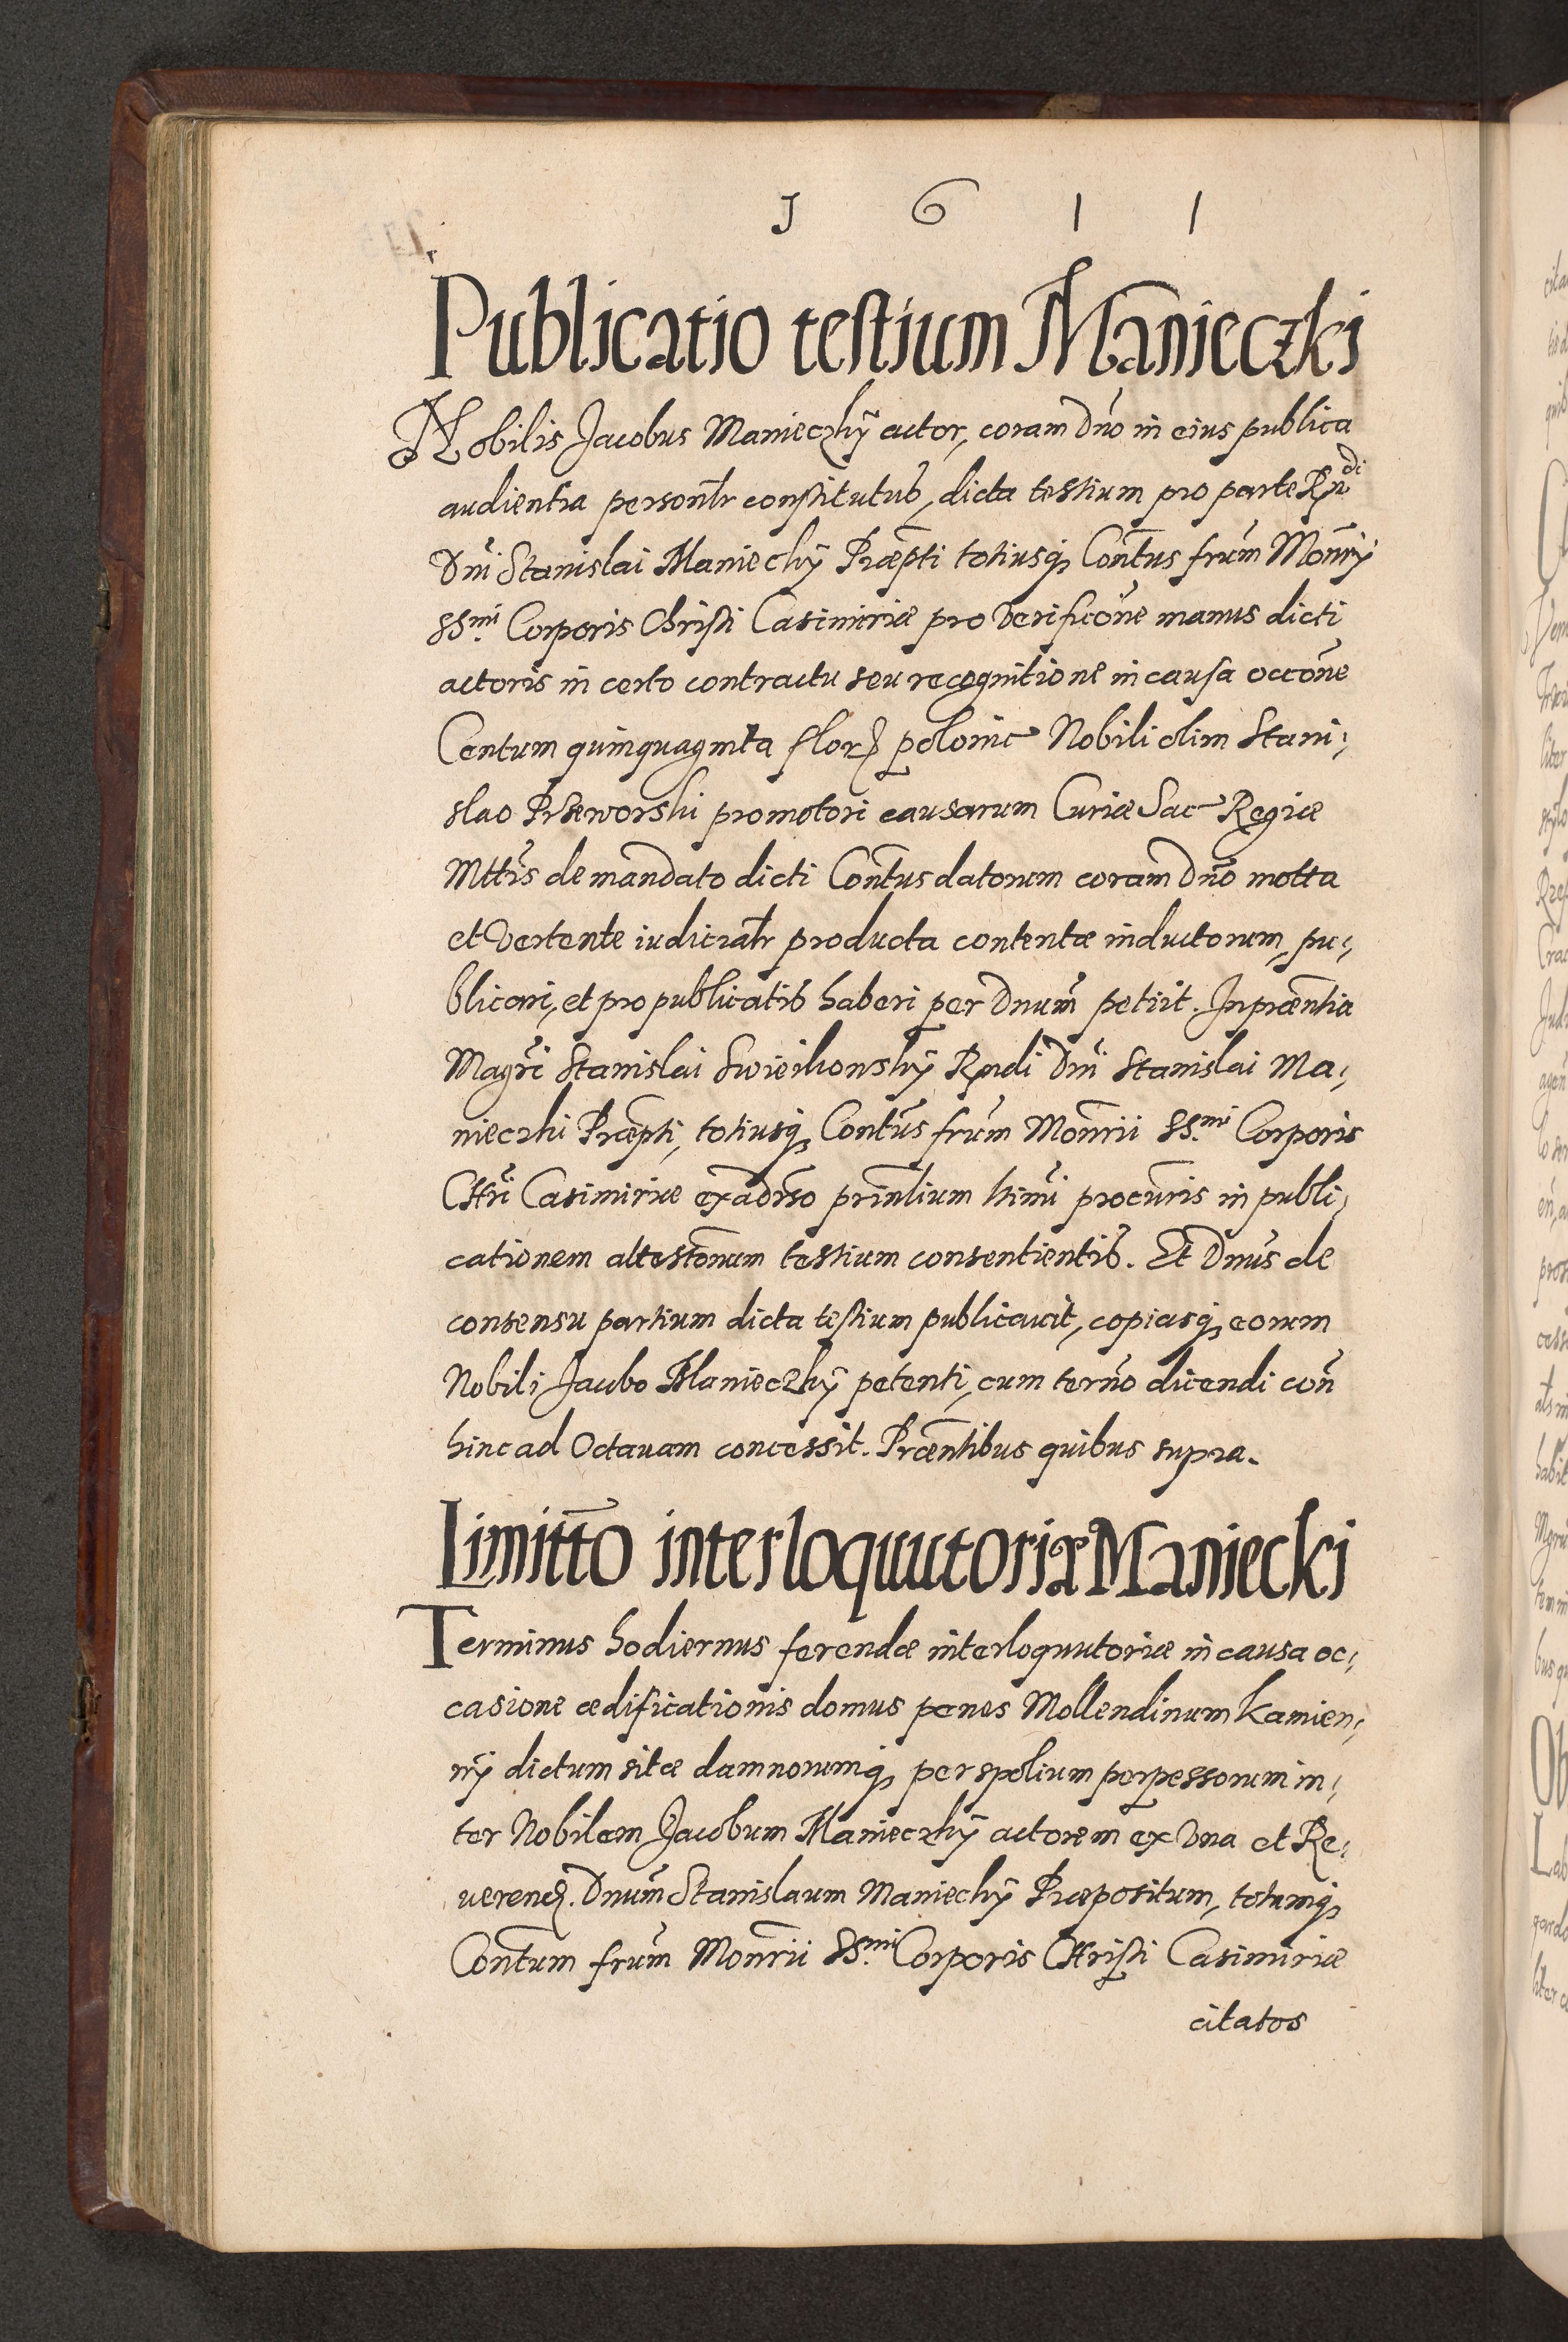 1 6 1 1
Publicatio testium Manieczki
Nobilis Jacobus Manieczky actor, coram Dno in eius publica
audientia personlr constitutus, dicta testium pro parte Rndi
Dni Stanislai Maniecky Præpti totiusq Contus frum Monrÿ
SSmi Corporis Christi Casimiriæ pro verificone manus dicti
actoris in certo contractu seu recognitione in causa occone
Centum quinquaginta flor polonic Nobili olim Stani,
slao Prseworski promotori causarum Curiæ Sac Regiæ
Mttis de mandato dicti Contus datorum coram Dno motta
et vertente iudicialr producta contentæ inductorum, pu,
blicari, et pro publicatis haberi per Dnum petiit. In præntia
Magri Stanislai Rndi Dni Stanislai Ma,
nieczki Præpti, totiusq Contus frum Monrii SSmi Corporis
Chri Casimiriæ ex adrso prinlium ltimi procuris in publi,
cationem attestonum testium consentientis. Et Dnus de
consensu partium dicta testium publicavit, copiasq eorum
Nobili Jacobo Manieczky petenti, cum terno dicendi con
hinc ad Octavam concessit. Præntibus quibus supra.
Limitto interloquutoriæ Maniecki
Terminus hodiernus ferendæ interloquutoriæ in causa oc,
casione ædificationis domus penes Mollendinum Kamien,
ny dictum sitæ damnorumq per spolium perpessorum in,
ter Nobilem Jacobum Manieczky actorem ex una et Re,
verend. Dnum Stanislaum Maniecky Præpositum, totumq
Contum frum Monrii SSmi Corporis Christi Casimiriæ
citatos